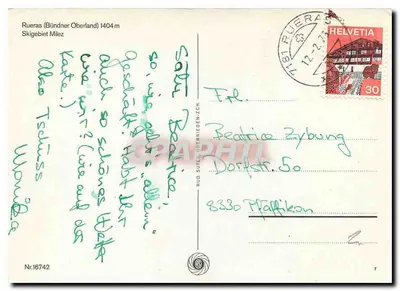 Rueras (Bündner Oberland) 1404 m
Skigebiet Milez
Salü Beatrice,
so, wie geht's "allein"
Geschäft? Habt Ihr
auch so schönes Wetter
wie wir? (wie auf der
Karte!)
Also Tschüss
Monika
Nr. 16742
7181 RUERAS
HELVETIA
30
Frl.
Beatrice Zybung
Dorfstr. 50
8330 Pfäffikon